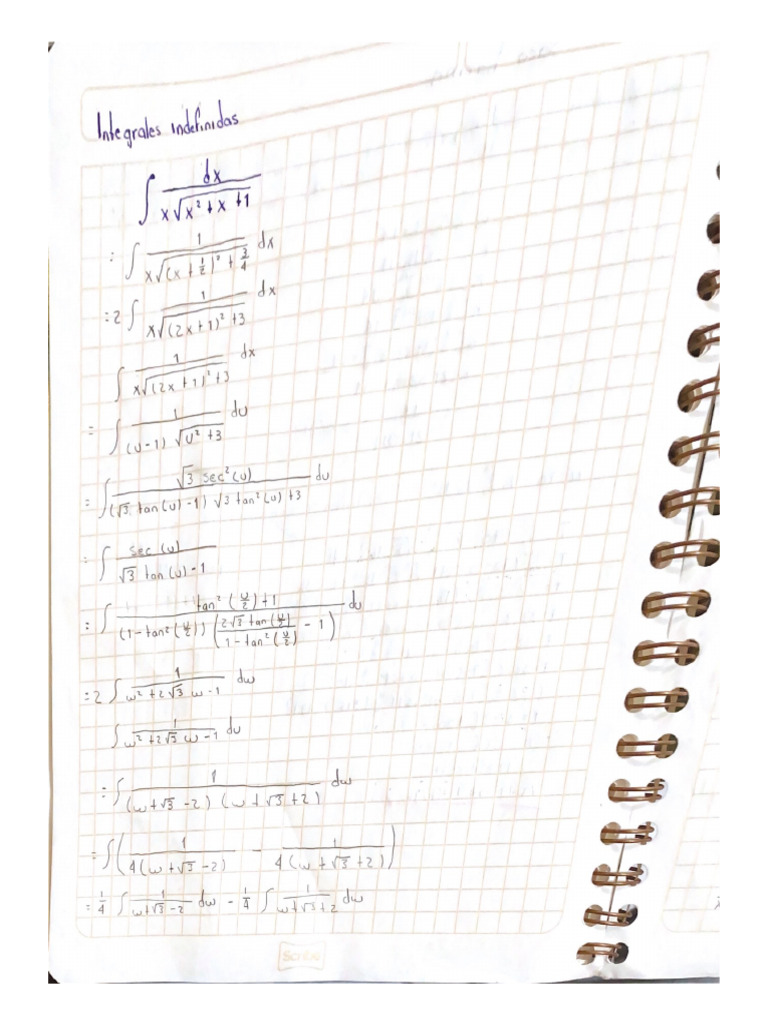 Integrales indefinidas
∫ dx / (x√(x² + x + 1))
= ∫ 1 / (x√((x + 1/2)² + 3/4)) dx
= 2 ∫ 1 / (x√((2x + 1)² + 3)) dx
∫ 1 / (x√((2x + 1)² + 3)) dx
= ∫ 1 / ((u-1) √(u² + 3)) du
= ∫ √3 sec²(u) / ((√3 tan(u) - 1) √(3 tan²(u) + 3)) du
= ∫ sec(u) / (√3 tan(u) - 1)
= ∫ (tan²(u/2) + 1) / ((1 - tan²(u/2)) (2√3 tan(u/2) / (1 - tan²(u/2)) - 1)) du
= 2 ∫ 1 / (w² + 2√3 w - 1) dw
∫ 1 / (w² + 2√3 w - 1) du
= ∫ 1 / ((w + √3 - 2) (w + √3 + 2)) dw
= ∫ (1 / (4(w + √3 - 2)) - 1 / (4(w + √3 + 2)))
= 1/4 ∫ 1 / (w + √3 - 2) dw - 1/4 ∫ 1 / (w + √3 + 2) dw
Scribe